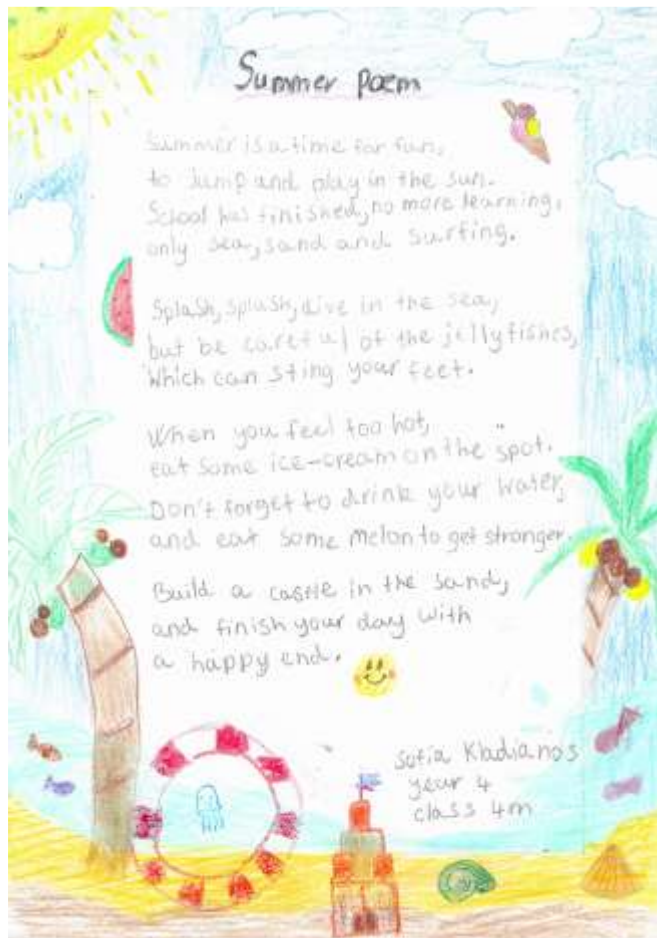 Summer Poem
Summer is a time for fun,
to jump and play in the sun.
School has finished, no more learning,
only sea, sand and surfing.
Splash, splash, dive in the sea,
but be careful of the jellyfishes,
Which can sting your feet.
When you feel too hot,
eat some ice-cream on the spot.
Don't forget to drink your water,
and eat some melon to get stronger.
Build a castle in the sand,
and finish your day with
a happy end.
Sofia Kladianos
year 4
class 4m